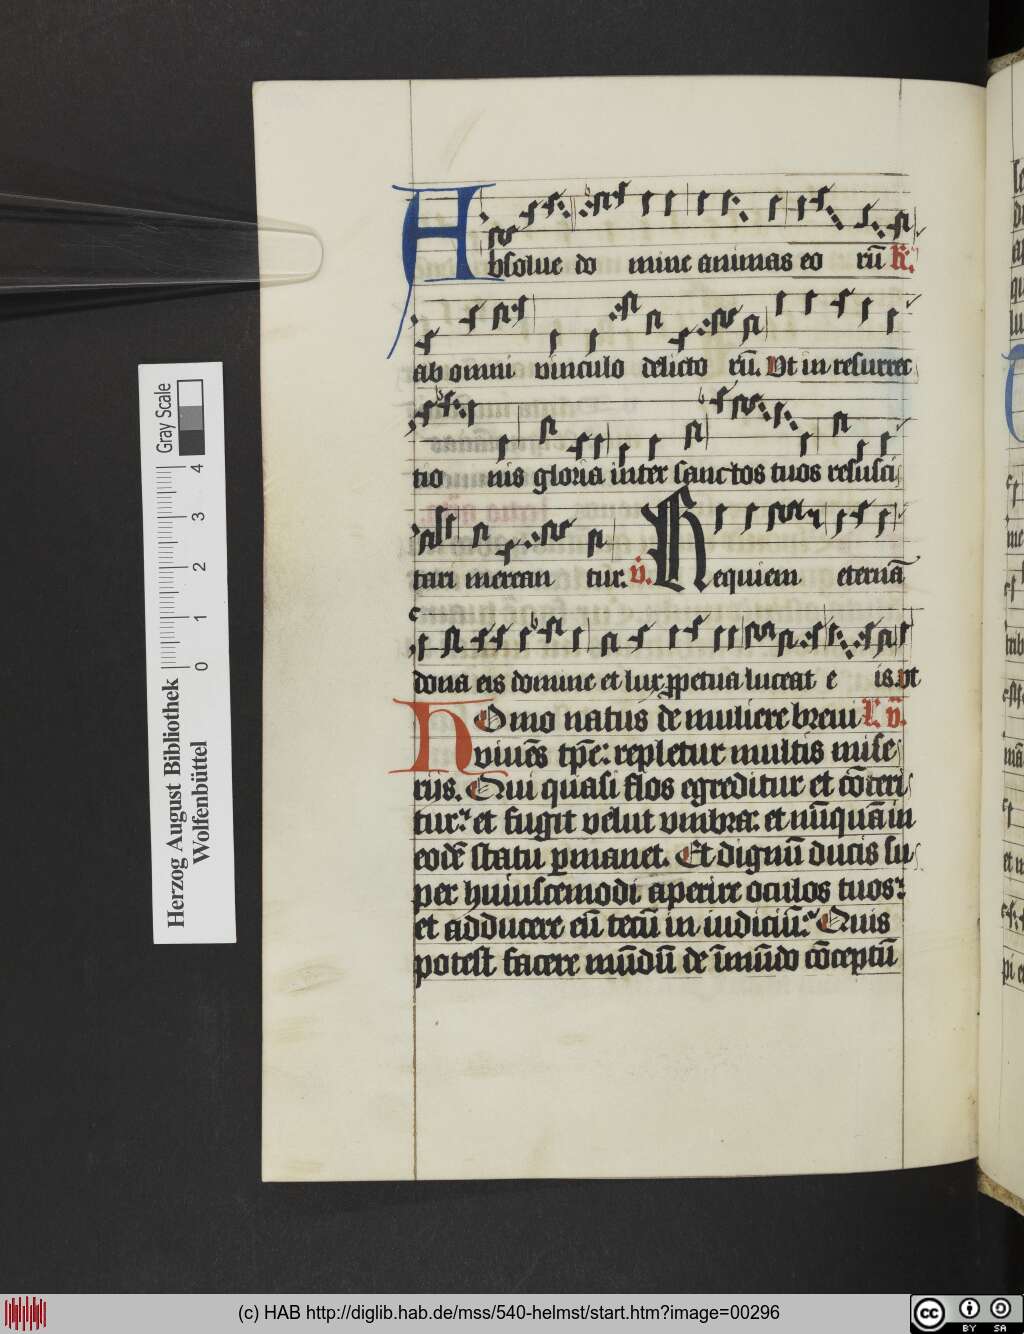 Absolue do mine animas eo rū R.
ab omni vinculo delicto rū. Vt in resurrec
tio nis gloria inter sanctos tuos resusci
tari merean tur. v̄. Requiem eternā
dona eis domine et lux ꝑpetua luceat e is. vt
Homo natus de muliere breui L. v̄.
viuēs tp̄e: repletur multis mise
rijs. Qui quasi flos egreditur et cōteri
tur: et fugit velut vmbra: et nūquā in
eodē statu ꝑmanet. Et dignū ducis su
per huiuscemodi aperire oculos tuos:
et adducere eū tecū in iudiciū: Quis
potest facere mūdū de īmūdo cōceptū
Gray Scale
0 1 2 3 4
Herzog August Bibliothek
Wolfenbüttel
(c) HAB http://diglib.hab.de/mss/540-helmst/start.htm?image=00296
cc BY SA